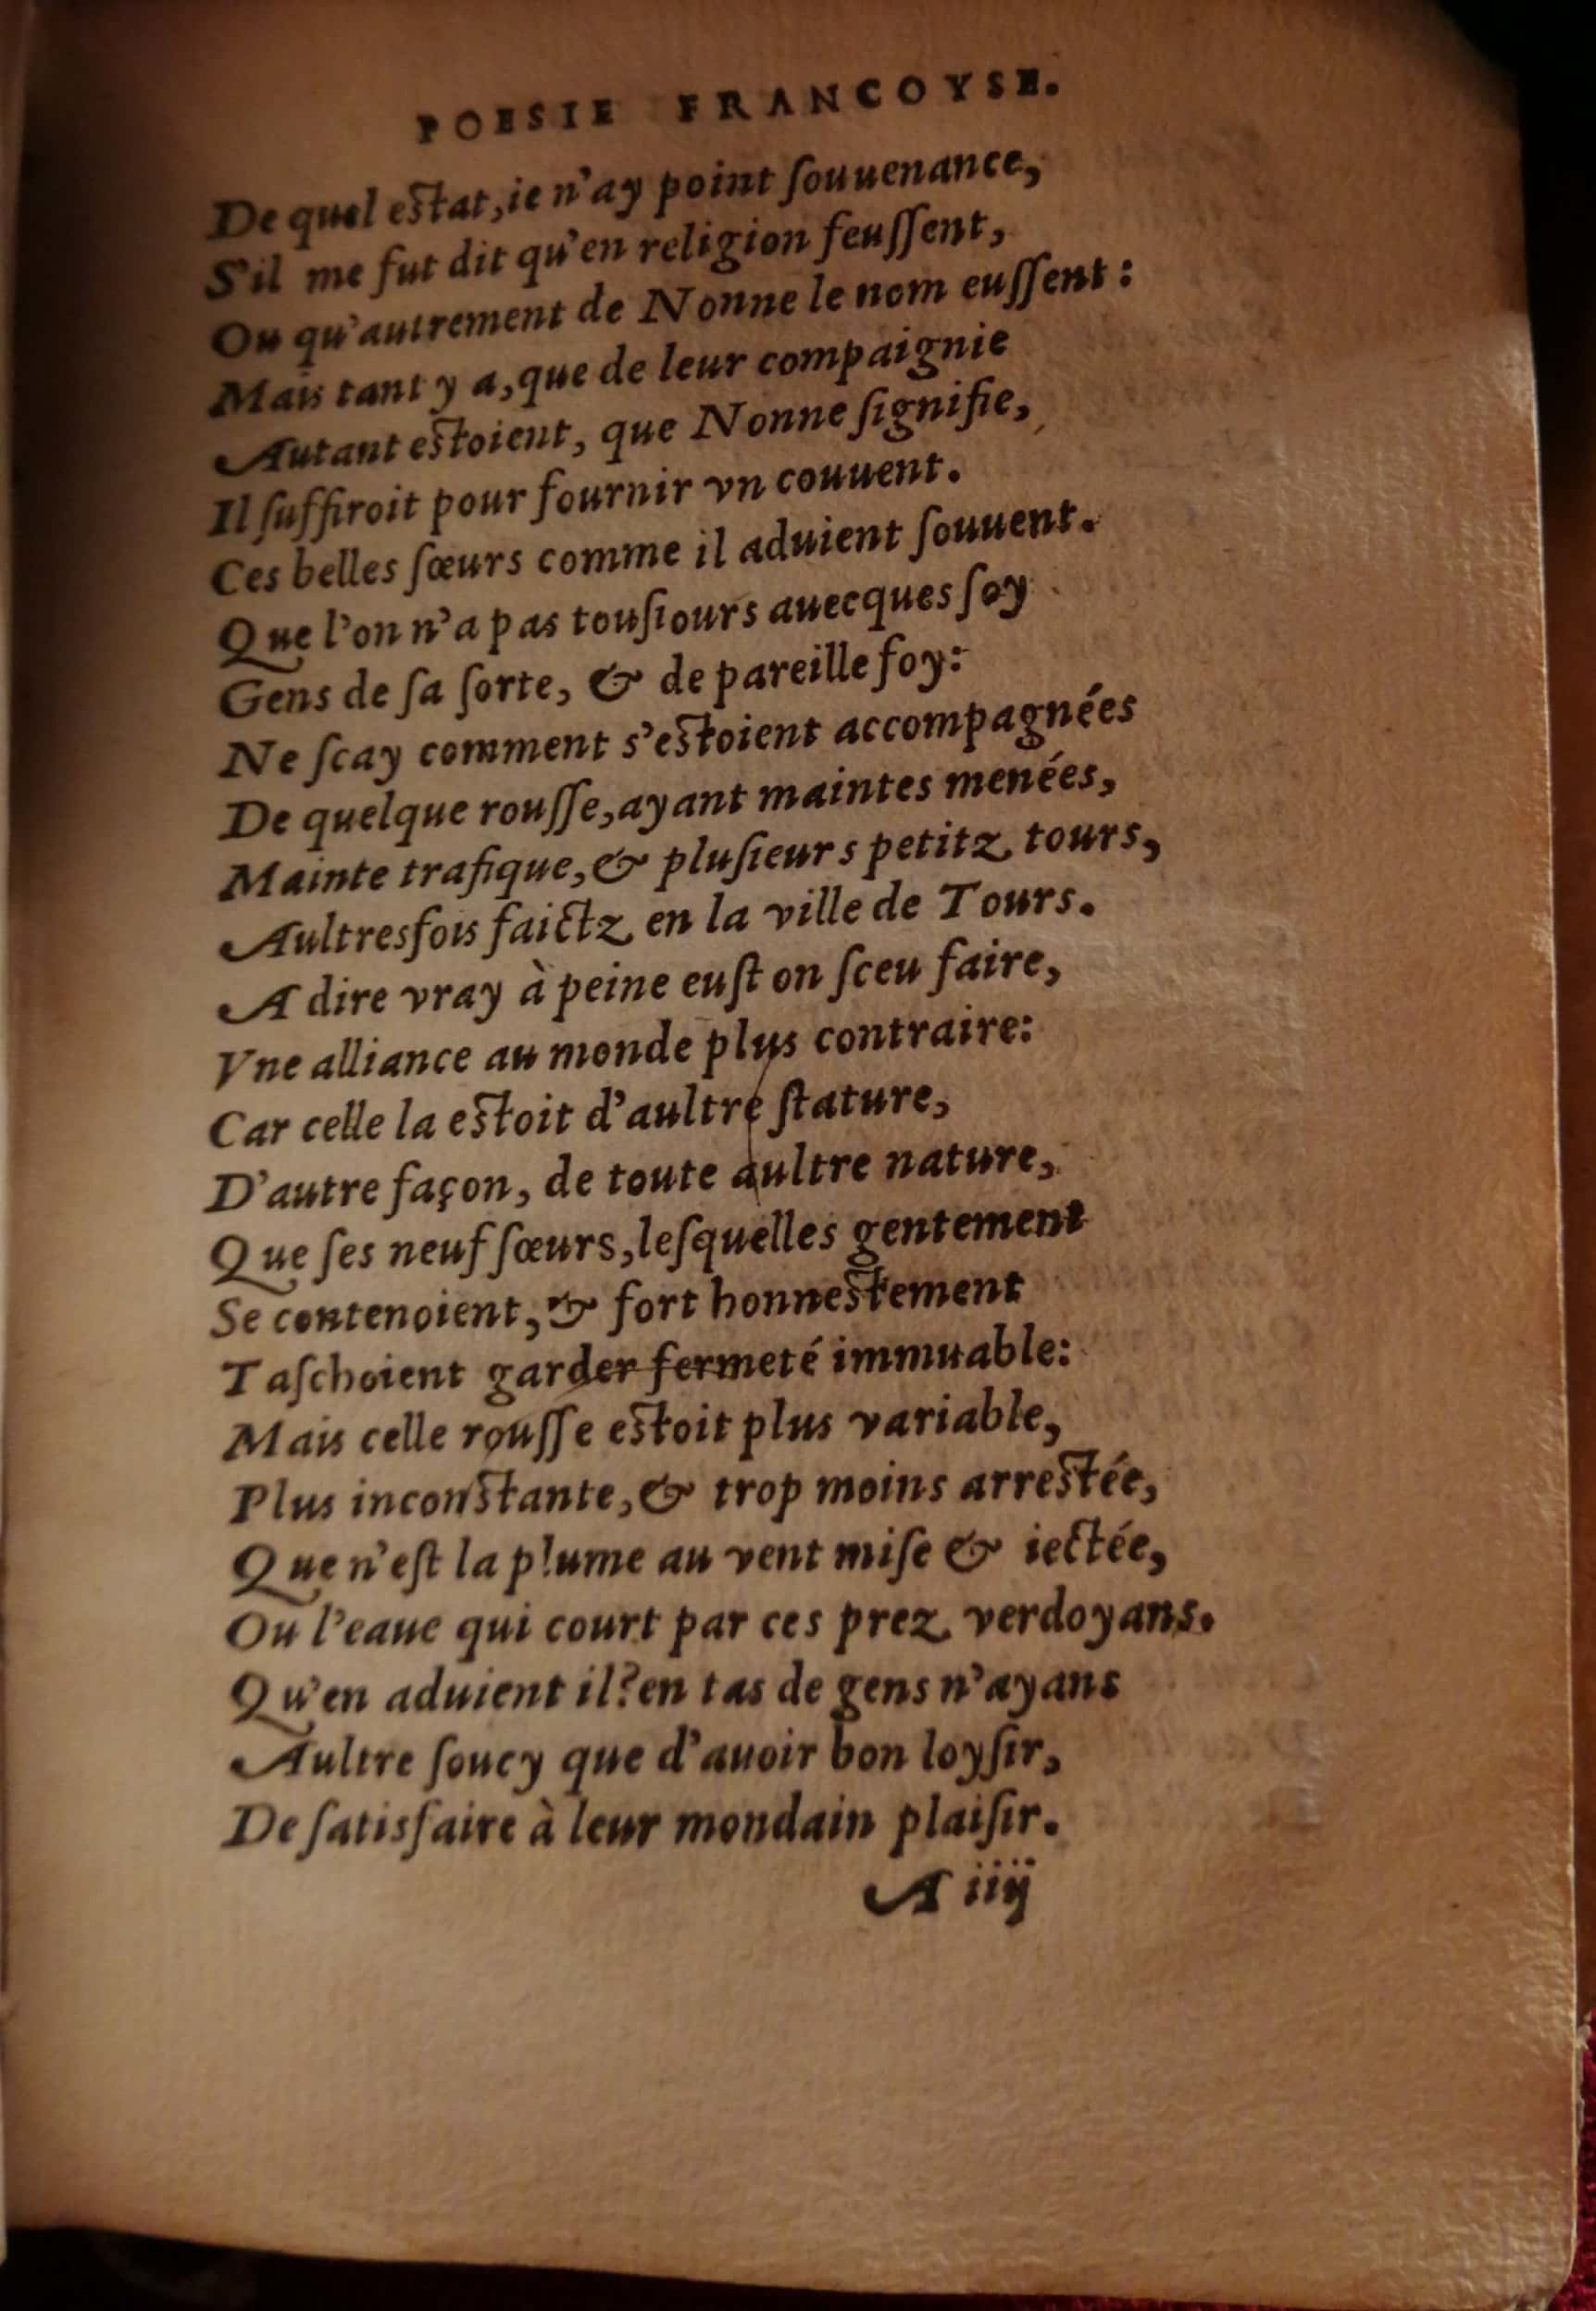 POESIE FRANCOYSE.
De quel eſtat, ie n'ay point ſouuenance,
S'il me fut dit qu'en religion feuſſent,
Ou qu'autrement de Nonne le nom euſſent:
Mais tant y a, que de leur compaignie
Autant eſtoient, que Nonne ſignifie,
Il ſuffiroit pour fournir vn couuent.
Ces belles ſœurs comme il aduient ſouuent.
Que l'on n'a pas touſiours auecques ſoy
Gens de ſa ſorte, & de pareille foy:
Ne ſcay comment s'eſtoient accompagnées
De quelque rouſſe, ayant maintes menées,
Mainte trafique, & pluſieurs petitz tours,
Aultresfois faictz en la ville de Tours.
A dire vray à peine euſt on ſceu faire,
Vne alliance au monde plus contraire:
Car celle la eſtoit d'aultre ſtature,
D'autre façon, de toute aultre nature,
Que ſes neuf ſœurs, leſquelles gentement
Se contenoient, & fort honneſtement
Taſchoient garder fermeté immuable:
Mais celle rouſſe eſtoit plus variable,
Plus inconſtante, & trop moins arreſtée,
Que n'eſt la plume au vent miſe & iectée,
Ou l'eaue qui court par ces prez verdoyans.
Qu'en aduient il? en tas de gens n'ayans
Aultre ſoucy que d'auoir bon loyſir,
De ſatisfaire à leur mondain plaiſir.
A iiij